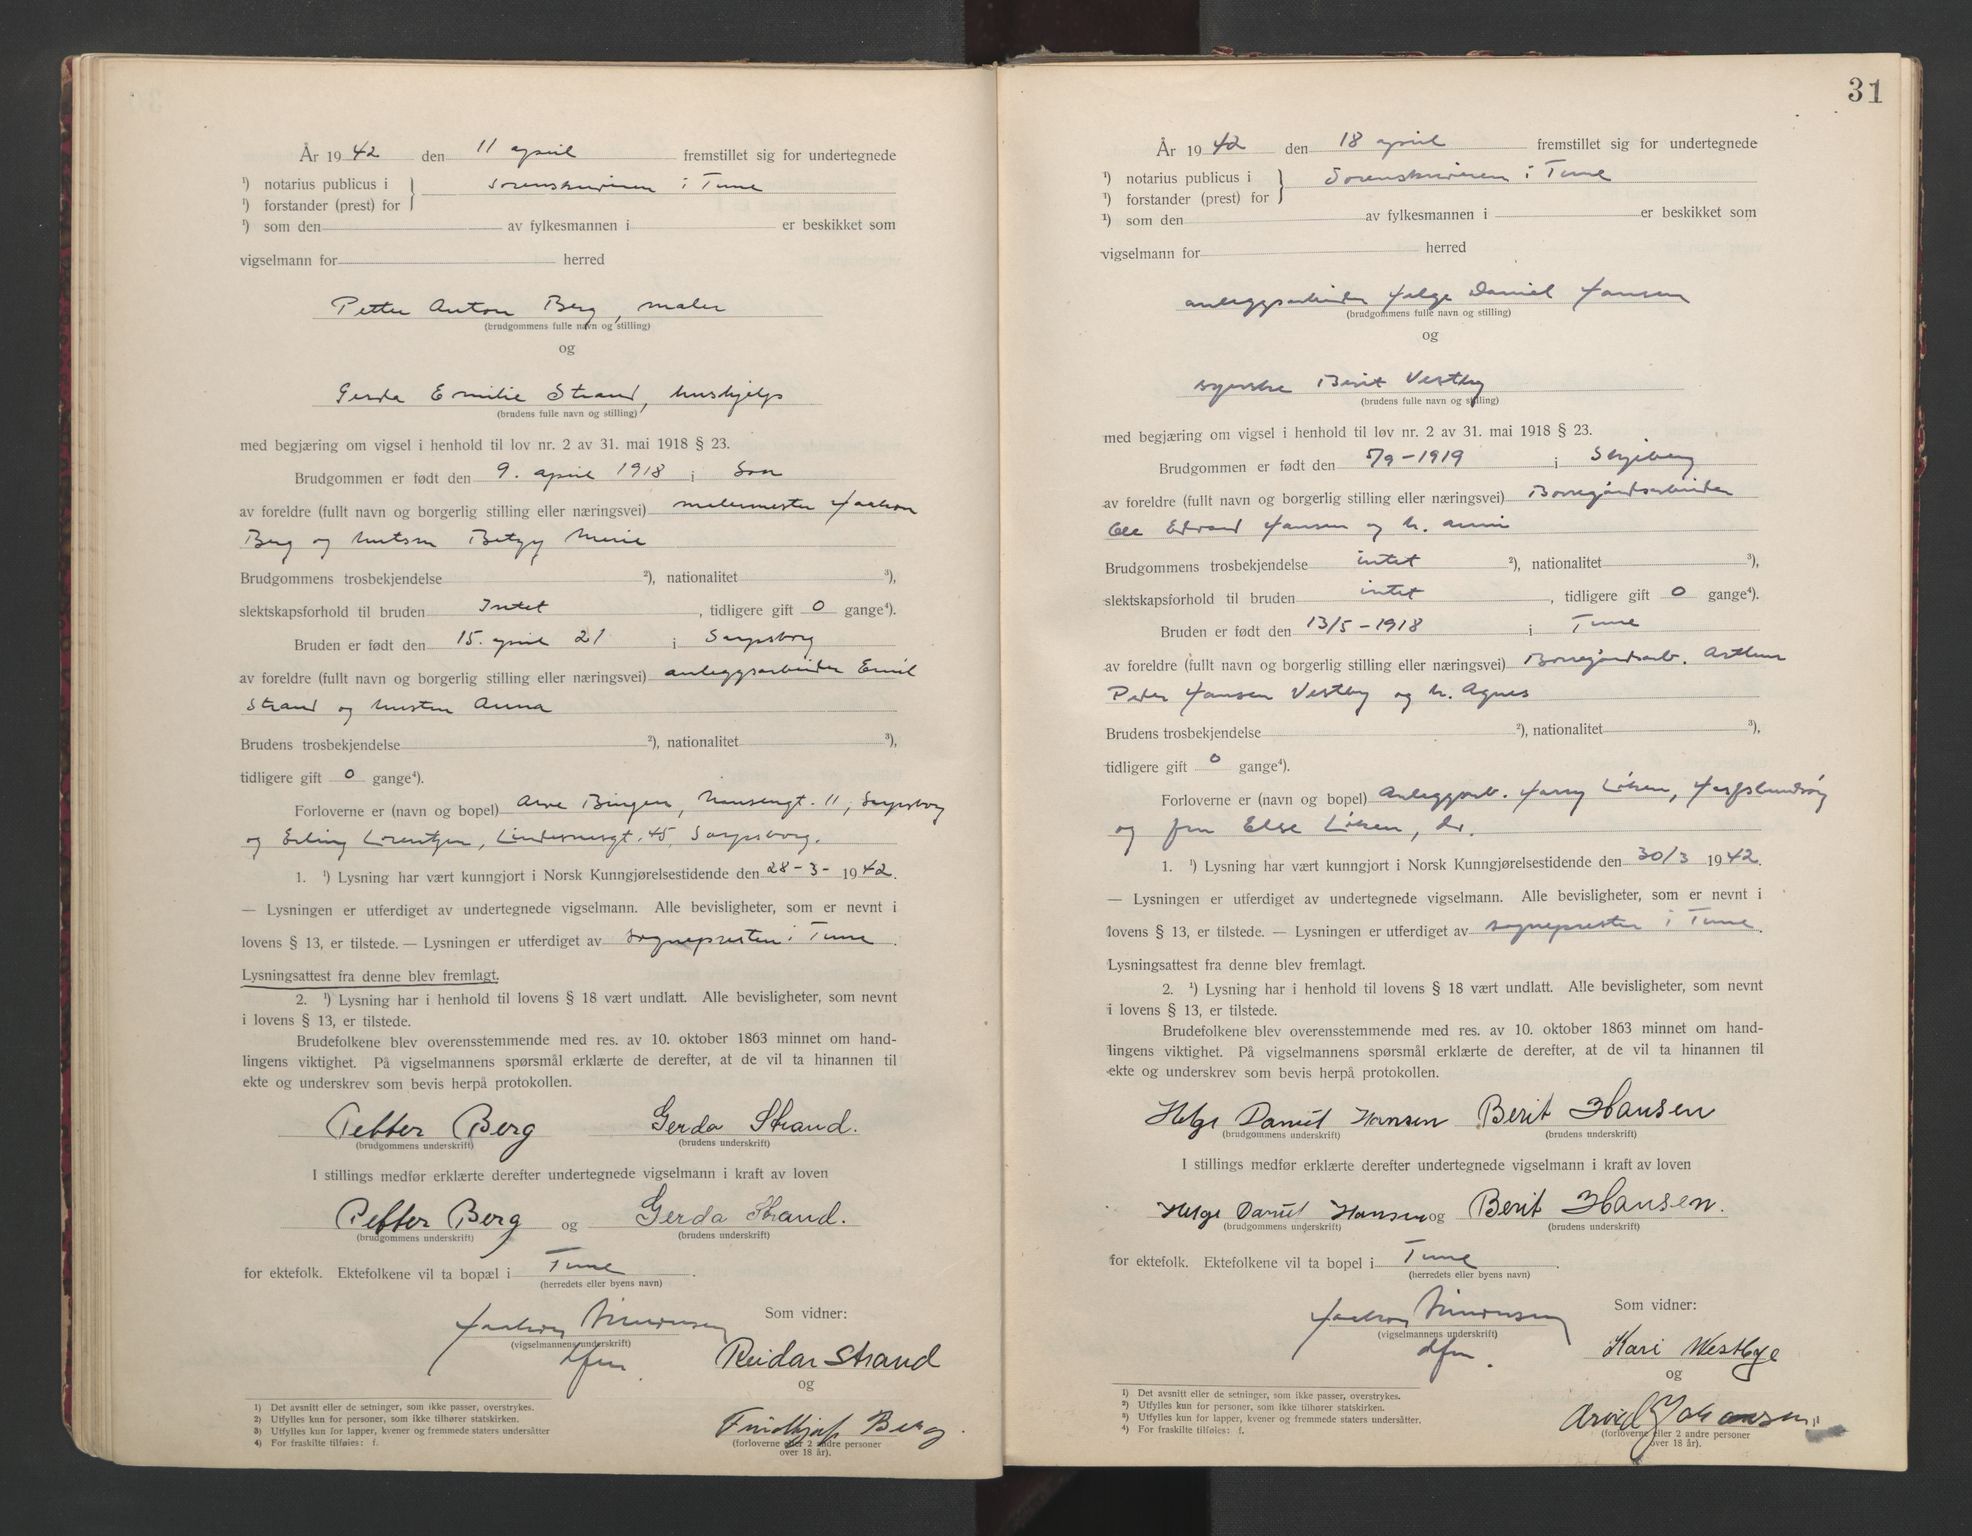 År 1942 den 11 april fremstillet sig for undertegnede
¹) notarius publicus i
¹) forstander (prest) for } Sorenskriveren i Tune
¹) som den av fylkesmannen i er beskikket som
vigselmann for herred
Petter Anton Berg, maler
(brudgommens fulle navn og stilling)
og
Gerda Emilie Strand, hushjelp
(brudens fulle navn og stilling)
med begjæring om vigsel i henhold til lov nr. 2 av 31. mai 1918 § 23.
Brudgommen er født den 9. april 1918 i Son
av foreldre (fullt navn og borgerlig stilling eller næringsvei) malermester Haakon
Berg og hustru Betzy Marie
Brudgommens trosbekjendelse ²), nationalitet ³),
slektskapsforhold til bruden Intet, tidligere gift 0 gange⁴).
Bruden er født den 15. april 21 i Sarpsborg
av foreldre (fullt navn og borgerlig stilling eller næringsvei) anleggsarbeider Emil
Strand og hustru Anna
Brudens trosbekjendelse ²), nationalitet ³),
tidligere gift 0 gange⁴).
Forloverne er (navn og bopel) Arve Bingen, Nansengt. 11, Sarpsborg
og Erling Lorentzen, Lindesnesgt. 45, Sarpsborg.
1. ¹) Lysning har vært kunngjort i Norsk Kunngjørelsestidende den 28-3-1942.
— Lysningen er utferdiget av undertegnede vigselmann. Alle bevisligheter, som er nevnt i
lovens § 13, er tilstede. — Lysningen er utferdiget av sognepresten i Tune.
Lysningsattest fra denne blev fremlagt.
2. ¹) Lysning har i henhold til lovens § 18 vært undlatt. Alle bevisligheter, som nevnt
i lovens § 13, er tilstede.
Brudefolkene blev overensstemmende med res. av 10. oktober 1863 minnet om hand-
lingens viktighet. På vigselmannens spørsmål erklærte de derefter, at de vil ta hinannen til
ekte og underskrev som bevis herpå protokollen.
Petter Berg Gerda Strand.
(brudgommens underskrift) (brudens underskrift)
I stillings medfør erklærte derefter undertegnede vigselmann i kraft av loven
Petter Berg og Gerda Strand.
(brudgommens underskrift) (brudens underskrift)
for ektefolk. Ektefolkene vil ta bopæl i Tune.
(herredets eller byens navn)
Som vidner:
Haakon Simonsen
(vigselmannens underskrift)
dfm
Reidar Strand
og
Fridtjof Berg
(forloverne eller 2 andre personer
over 18 år).
1) Det avsnitt eller de setninger, som ikke passer, overstrykes.
2) Utfylles kun for personer, som ikke tilhører statskirken.
3) Utfylles kun for lapper, kvener og fremmede staters undersåtter
4) For fraskilte tilføies: f.
31
År 1942 den 18 april fremstillet sig for undertegnede
¹) notarius publicus i
¹) forstander (prest) for } Sorenskriveren i Tune
¹) som den av fylkesmannen i er beskikket som
vigselmann for herred
anleggsarbeider Helge Daniel Hansen
(brudgommens fulle navn og stilling)
og
syerske Berit Vestby
(brudens fulle navn og stilling)
med begjæring om vigsel i henhold til lov nr. 2 av 31. mai 1918 § 23.
Brudgommen er født den 5/9-1919 i Skjeberg
av foreldre (fullt navn og borgerlig stilling eller næringsvei) Borregårdsarbeider
Ole Edvard Hansen og h. Anni
Brudgommens trosbekjendelse intet ²), nationalitet ³),
slektskapsforhold til bruden intet, tidligere gift 0 gange⁴).
Bruden er født den 13/5-1918 i Tune
av foreldre (fullt navn og borgerlig stilling eller næringsvei) Borregårdsarb. Arthur
Peder Hansen Vestby og h. Agnes
Brudens trosbekjendelse ²), nationalitet ³),
tidligere gift 0 gange⁴).
Forloverne er (navn og bopel) Anleggsarb. Harry Löken, Hafslundsöy
og fru Else Löken, do.
1. ¹) Lysning har vært kunngjort i Norsk Kunngjørelsestidende den 30/3 1942.
— Lysningen er utferdiget av undertegnede vigselmann. Alle bevisligheter, som er nevnt i
lovens § 13, er tilstede. — Lysningen er utferdiget av sognepresten i Tune.
Lysningsattest fra denne blev fremlagt.
2. ¹) Lysning har i henhold til lovens § 18 vært undlatt. Alle bevisligheter, som nevnt
i lovens § 13, er tilstede.
Brudefolkene blev overensstemmende med res. av 10. oktober 1863 minnet om hand-
lingens viktighet. På vigselmannens spørsmål erklærte de derefter, at de vil ta hinannen til
ekte og underskrev som bevis herpå protokollen.
Helge Daniel Hansen Berit Hansen
(brudgommens underskrift) (brudens underskrift)
I stillings medfør erklærte derefter undertegnede vigselmann i kraft av loven
Helge Daniel Hansen og Berit Hansen.
(brudgommens underskrift) (brudens underskrift)
for ektefolk. Ektefolkene vil ta bopel i Tune.
(herredets eller byens navn)
Som vidner:
Haakon Simonsen
(vigselmannens underskrift)
dfm.
Kari Westbye
og
Arvid Johansen
(forloverne eller 2 andre personer
over 18 år).
1) Det avsnitt eller de setninger, som ikke passer, overstrykes.
2) Utfylles kun for personer, som ikke tilhører statskirken.
3) Utfylles kun for lapper, kvener og fremmede staters undersåtter.
4) For fraskilte tilføies: f.